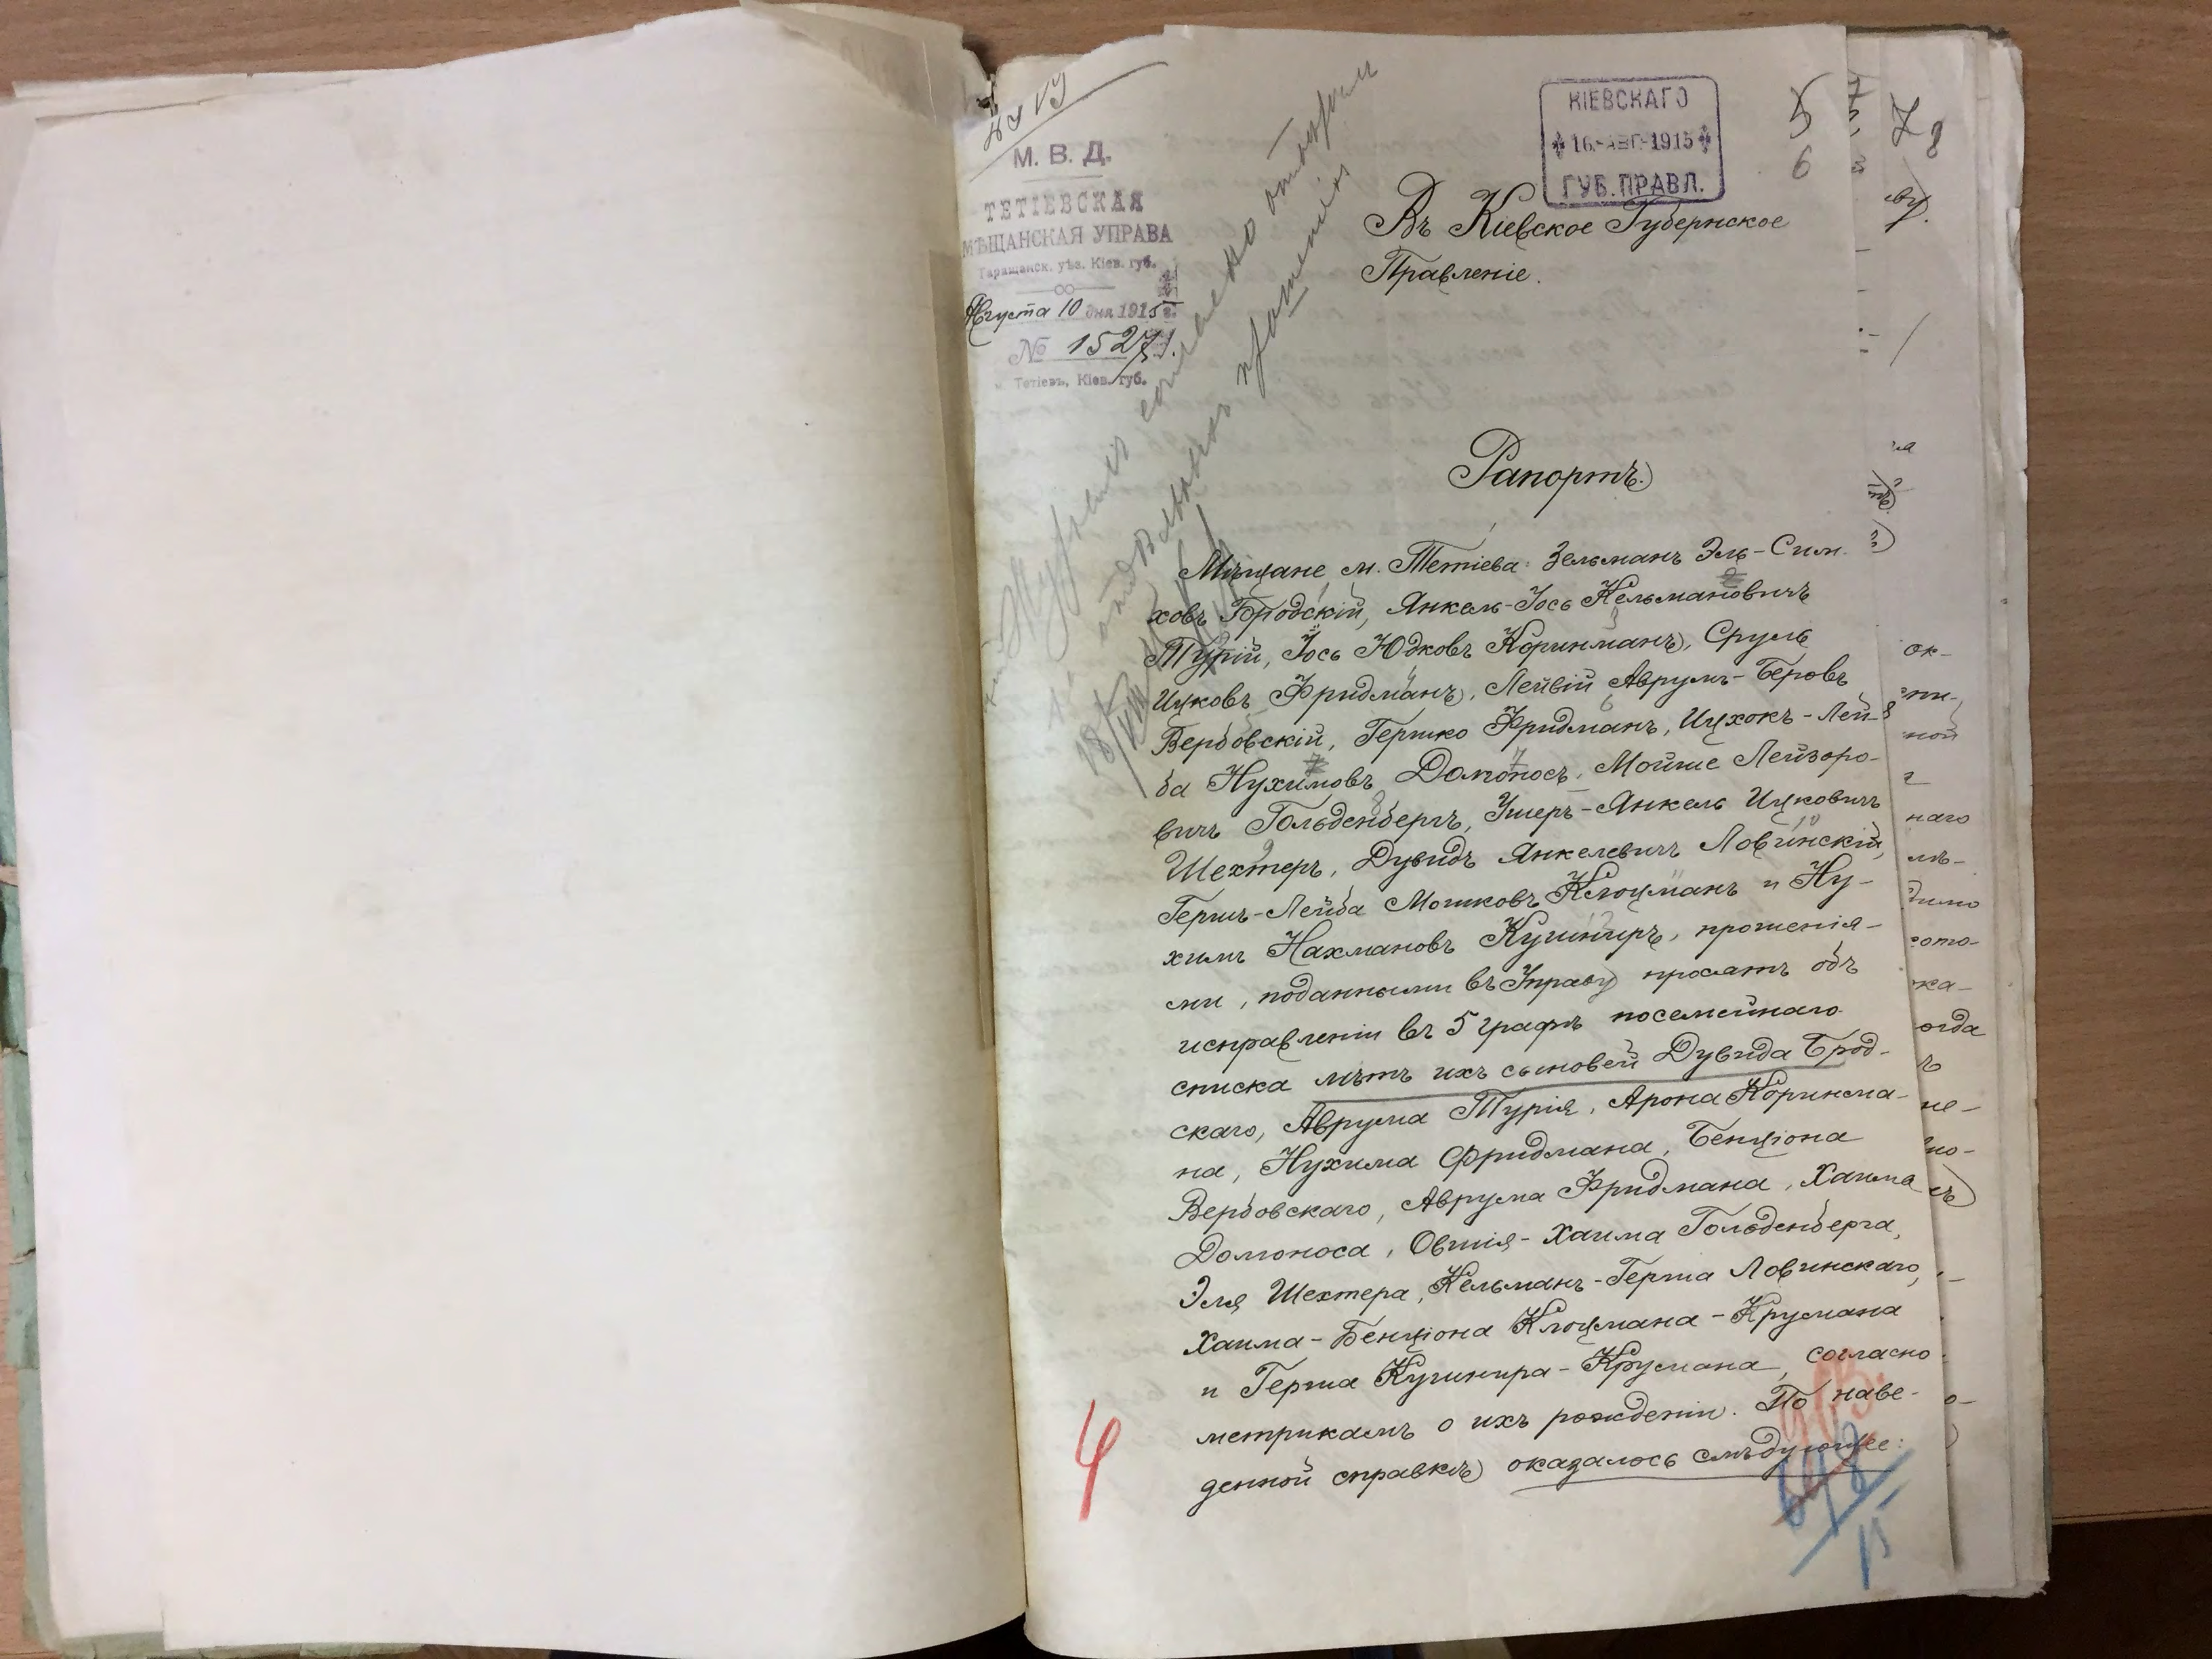 М. В. Д.
ТЕТІЕВСКАЯ
МѢЩАНСКАЯ УПРАВА
Таращанск. уѣз. Кіев. губ.
Августа 10 дня 1915 г.
№ 1527
м. Тетіевъ, Кіев. губ.
КІЕВСКАГО
16-АВГ-1915
ГУБ. ПРАВЛ.
5
6
7
8
Въ Кіевское Губернское
Правленіе.
Рапортъ.
Мѣщане м. Тетіева: Зельманъ Эль-Сим-
ховъ Бродскій, Янкель-Іось Кельмановичъ
Турій, Іось Юдковъ Коринманъ, Сруль
Ицковъ Фридманъ, Лейвій Аврумъ-Беровъ
Вербовскій, Гершко Фридманъ, Ицхокъ-Лей-
ба Нухимовъ Домонось, Мойше Лейзоро-
вичъ Гольденбергъ, Ушеръ-Янкель Ицковичъ
Шехтеръ, Дувидъ Янкелевичъ Ловинскій,
Гершъ-Лейба Мошковъ Клоцманъ и Ну-
химъ Нахмановъ Кушниръ, прошенія-
ми, поданными въ Управу просятъ объ
исправленіи въ 5 графѣ посемейнаго
списка лѣтъ ихъ сыновей Дувида Брод-
скаго, Аврума Турія, Арона Коринма-
на, Нухима Фридмана, Бенціона
Вербовскаго, Аврума Фридмана, Хаима
Домоноса, Овшія-Хаима Гольденберга,
Эля Шехтера, Кельманъ-Герша Ловинскаго,
Хаима-Бенціона Клоцмана-Крумана
и Герша Кушнира-Крумана, согласно
метрикамъ о ихъ рожденіи. По наве-
денной справкѣ оказалось слѣдующее:
4
698
15